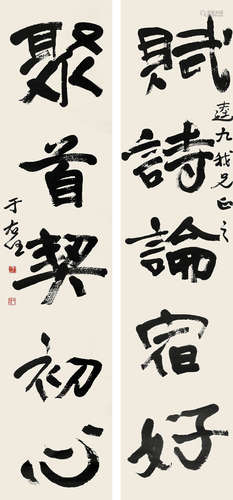 賦詩論宿好
達九我兄正之
聚首契初心
于右任